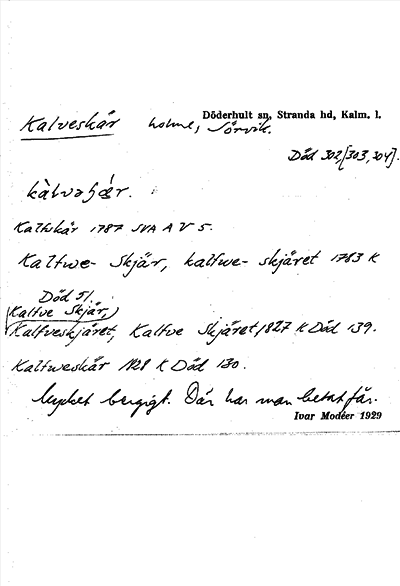 Döderhult sn, Stranda hd, Kalm. l.
Kalveskär holme, Sörvik.
Död 302, [303, 304].
Kalfskär 1787 SVA A V 5.
Kalfwe- Skjär, kalfwe- skjäret 1783 K
Död 51.
Kalfve Skjär,
Kalfveskjäret, Kalfve Skjäret 1827 K Död 139.
Kalfweskär 1828 K Död 130.
Mycket bergigt. Där har man betat får.
Ivar Modéer 1929